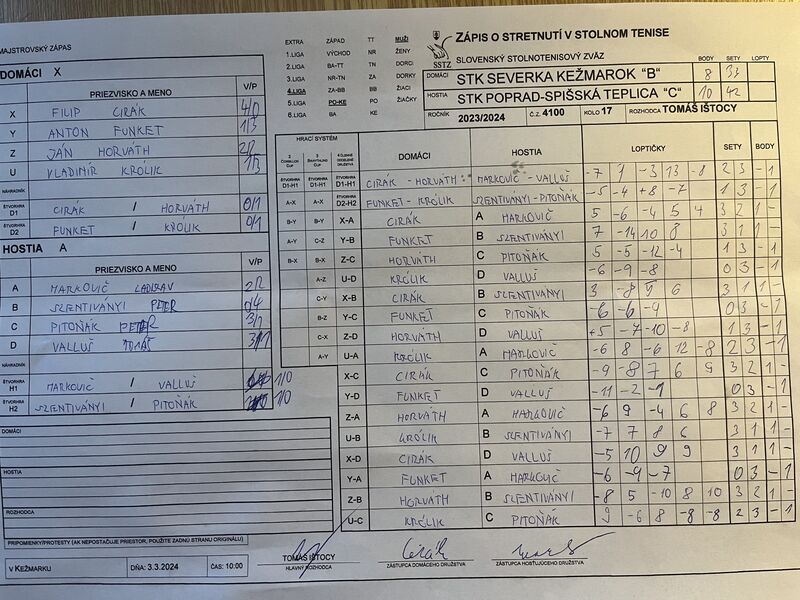 MAJSTROVSKÝ ZÁPAS
EXTRA ZÁPAD TT MUŽI
1.LIGA VÝCHOD NR ŽENY
2.LIGA BA-TT TN DORCI
3.LIGA NR-TN ZA DORKY
4.LIGA ZA-BB BB ŽIACI
5.LIGA PO-KE PO ŽIAČKY
6.LIGA BA KE
SSTZ
ZÁPIS O STRETNUTÍ V STOLNOM TENISE
SLOVENSKÝ STOLNOTENISOVÝ ZVÄZ
BODY SETY LOPTY
DOMÁCI STK SEVERKA KEŽMAROK "B" 8 33
HOSTIA STK POPRAD-SPIŠSKÁ TEPLICA "C" 10 42
ROČNÍK 2023/2024 Č.Z. 4100 KOLO 17 ROZHODCA TOMÁŠ IŠTOCY
DOMÁCI X
PRIEZVISKO A MENO V/P
X FILIP CIRÁK 4/0
Y ANTON FUNKET 1/3
Z JÁN HORVÁTH
U VLADIMÍR KRÓLIK 1/3
NÁHRADNÍK
ŠTVORHRA D1 CIRÁK / HORVÁTH 0/1
ŠTVORHRA D2 FUNKET / KRÓLIK 0/1
HOSTIA A
PRIEZVISKO A MENO V/P
A MARKOVIČ LADISLAV
B SZENTIVÁNYI PETER 0/4
C PITOŇÁK PETER 3/1
D VALLUŠ TOMÁŠ 3/1
NÁHRADNÍK
ŠTVORHRA H1 MARKOVIČ / VALLUŠ 1/0
ŠTVORHRA H2 SZENTIVÁNYI / PITOŇÁK 1/0
DOMÁCI
HOSTIA
ROZHODCA
HRACÍ SYSTÉM DOMÁCI HOSTIA LOPTIČKY SETY BODY
ŠTVORHRA D1-H1 ŠTVORHRA D1-H1 ŠTVORHRA D1-H1 CIRÁK - HORVÁTH MARKOVIČ - VALLUŠ -7 9 -3 13 -8 2 3 - 1
A-X A-X ŠTVORHRA D2-H2 FUNKET - KRÓLIK SZENTIVÁNYI - PITOŇÁK -5 -4 +8 -7 1 3 - 1
B-Y B-Y X-A CIRÁK A MARKOVIČ 5 -6 -4 5 4 3 2 1 -
A-Y C-Z Y-B FUNKET B SZENTIVÁNYI 7 -14 10 8 3 1 1 -
B-X B-X Z-C HORVÁTH C PITOŇÁK 5 -5 -12 -4 1 3 - 1
A-Z U-D KRÓLIK D VALLUŠ -6 -9 -8 0 3 - 1
C-Y X-B CIRÁK B SZENTIVÁNYI 3 -8 5 6 3 1 1 -
B-Z Y-C FUNKET C PITOŇÁK -6 -6 -4 0 3 - 1
C-X Z-D HORVÁTH D VALLUŠ +5 -7 -10 -8 1 3 - 1
A-Y U-A KRÓLIK A MARKOVIČ -6 8 -6 12 -8 2 3 - 1
X-C CIRÁK C PITOŇÁK -9 -8 7 6 9 3 2 1 -
Y-D FUNKET D VALLUŠ -11 -2 -9 0 3 - 1
Z-A HORVÁTH A MARKOVIČ -6 9 -4 6 8 3 2 1 -
U-B KRÓLIK B SZENTIVÁNYI -7 7 8 6 3 1 1 -
X-D CIRÁK D VALLUŠ -5 10 9 9 3 1 1 -
Y-A FUNKET A MARKOVIČ -6 -9 -7 0 3 - 1
Z-B HORVÁTH B SZENTIVÁNYI -8 5 -10 8 10 3 2 1 -
U-C KRÓLIK C PITOŇÁK 9 -6 8 -8 -8 2 3 - 1
PRIPOMIENKY/PROTESTY (AK NEPOSTAČUJE PRIESTOR, POUŽITE ZADNÚ STRANU ORIGINÁLU)
V KEŽMARKU DŇA: 3.3.2024 ČAS: 10:00
TOMÁŠ IŠTOCY
HLAVNÝ ROZHODCA
ZÁSTUPCA DOMÁCEHO DRUŽSTVA
ZÁSTUPCA HOSŤUJÚCEHO DRUŽSTVA